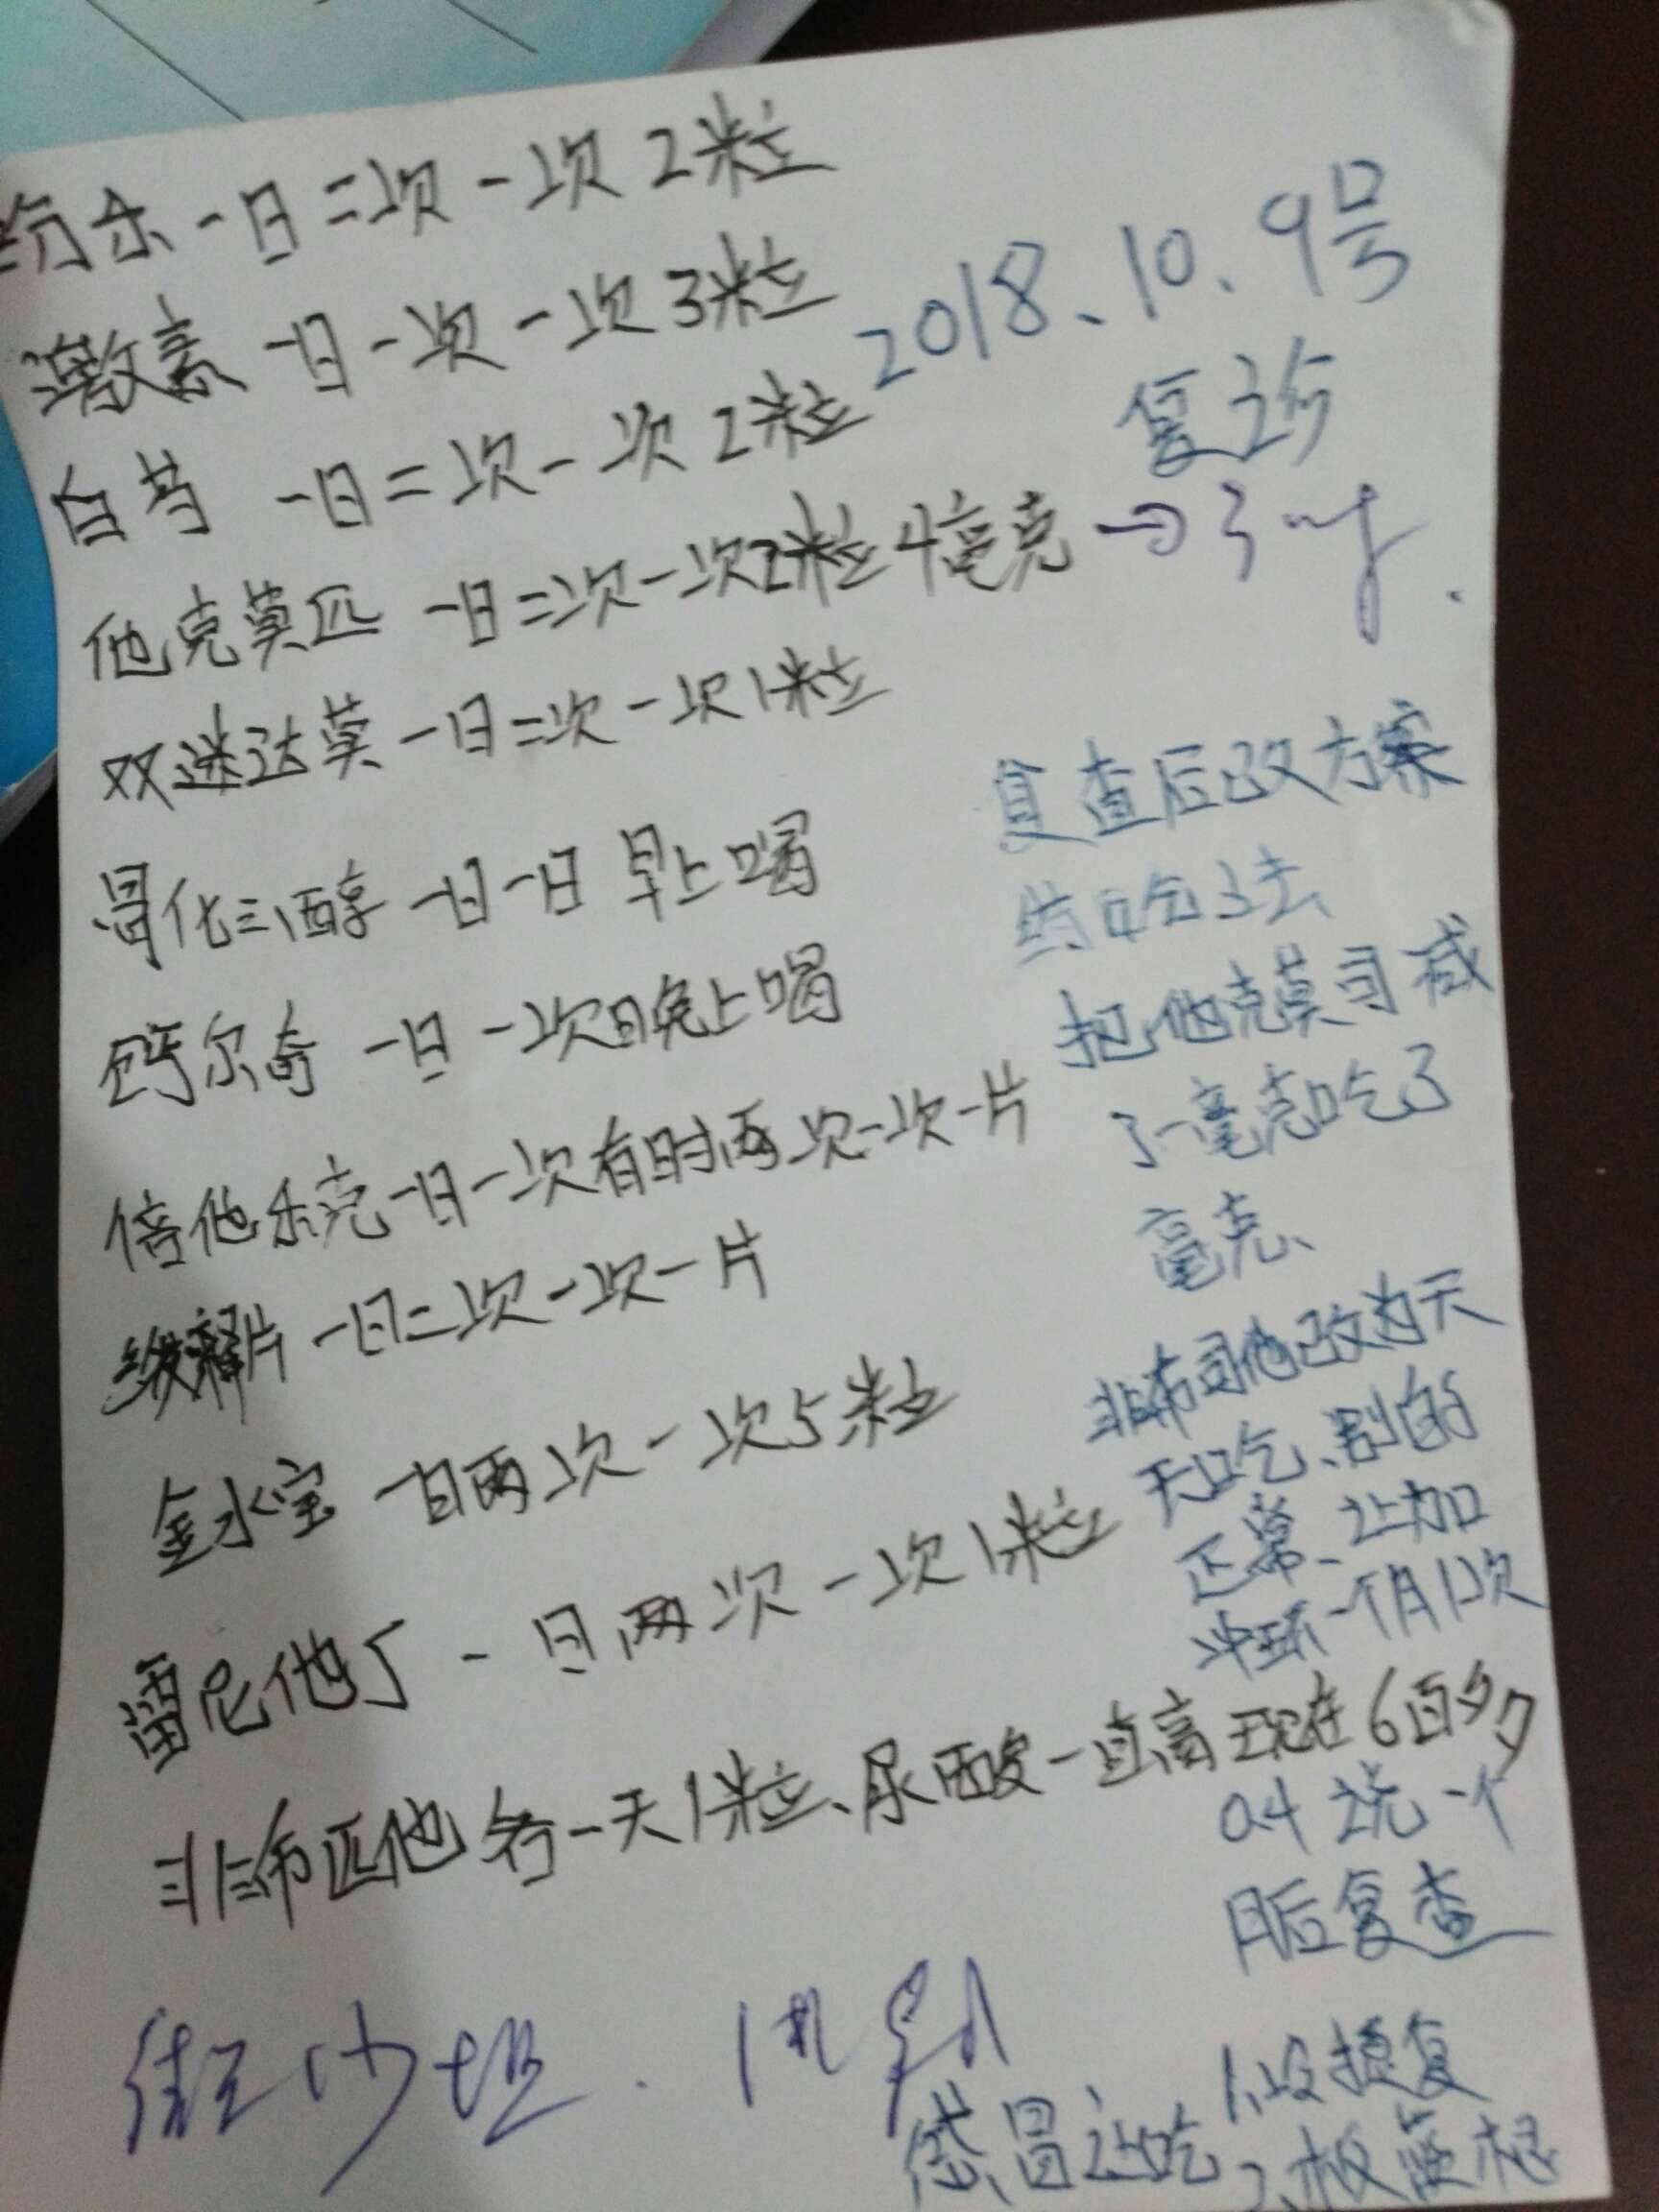 一日二次一次2粒
激素 一日一次一次3粒
2018、10、9号
复诊
白芍 一日二次一次2粒
他克莫匹 一日二次一次2粒4毫克→3mg.
双迷达莫一日二次一次1粒
骨化三醇一日一日 早上喝
钙尔奇 一日一次晚上喝
倍他乐克一日一次有时两次一次一片
缓释片一日二次一次一片
金水宝 一日两次一次5粒
雷尼他丁一日两次一次1粒
非布匹他 一天1粒、尿酸一直高现在6百多
复查后改方案
把他克莫司减
了一毫克吃3
毫克、
非布司他改为天
天吃、别的
正常、让加
冲环一个月1次
0.4 说一个
月后复查
缬沙坦. 1# qd
让吃 1、
2、板蓝根